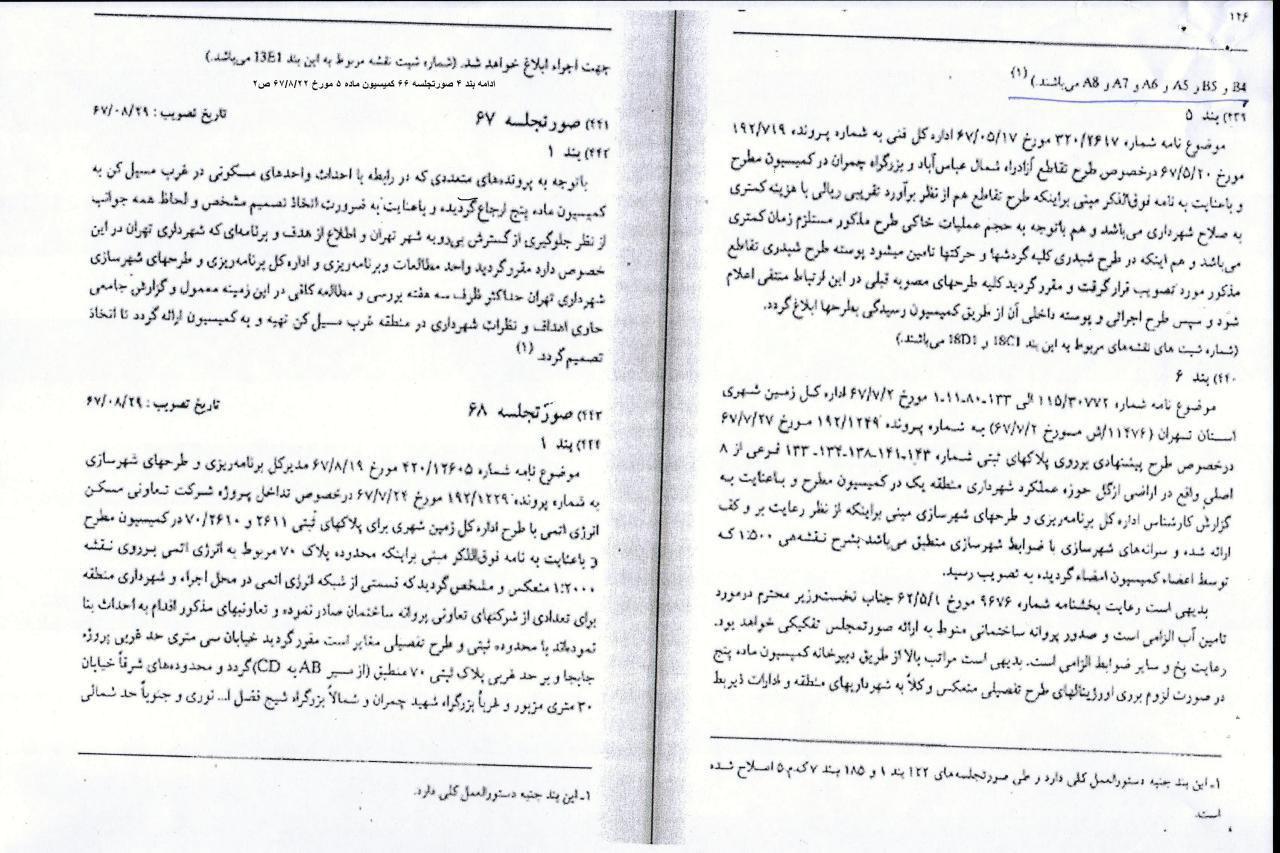 ۱۲۶
B4 و B5 و A5 و A6 و A7 و A8 می‌باشند.) (۱)
۴۳۹) بند ۵
موضوع نامه شماره ۳۲۰/۲۶۱۷ مورخ ۶۷/۰۵/۱۷ اداره کل فنی به شماره پرونده ۱۹۲/۷۱۹
مورخ ۶۷/۵/۲۰ درخصوص طرح تقاطع آزادراه شمال عباس‌آباد و بزرگراه چمران در کمیسیون مطرح
و باعنایت به نامه فوق‌الذکر مبنی براینکه طرح تقاطع هم از نظر برآورد تقریبی ریالی با هزینه کمتری
به صلاح شهرداری می‌باشد و هم باتوجه به حجم عملیات خاکی طرح مذکور مستلزم زمان کمتری
می‌باشد و هم اینکه در طرح شبدری کلیه گردشها و حرکتها تامین میشود پوسته طرح شبدری تقاطع
مذکور مورد تصویب قرار گرفت و مقرر گردید کلیه طرحهای مصوبه قبلی در این ارتباط منتفی اعلام
شود و سپس طرح اجرائی و پوسته داخلی آن از طریق کمیسیون رسیدگی بطرحها ابلاغ گردد.
(شماره ثبت های نقشه‌های مربوط به این بند 18C1 و 18D1 می‌باشند.)
۴۴۰) بند ۶
موضوع نامه شماره ۱۱۵/۳۰۷۷۲ الی ۱۳۳-۸۰-۱۱-۱ مورخ ۶۷/۷/۲ اداره کل زمین شهری
استان تهران (۱۱۴۷۶/ش مورخ ۶۷/۷/۲) به شماره پرونده ۱۹۲/۱۲۴۹ مورخ ۶۷/۷/۲۷
درخصوص طرح پیشنهادی برروی پلاکهای ثبتی شماره ۱۴۳-۱۴۱-۱۳۸-۱۳۴-۱۳۳ فرعی از ۸
اصلی واقع در اراضی ازگل حوزه عملکرد شهرداری منطقه یک در کمیسیون مطرح و باعنایت به
گزارش کارشناس اداره کل برنامه‌ریزی و طرحهای شهرسازی مبنی براینکه از نظر رعایت بر و کف
ارائه شده و سرانه‌های شهرسازی با ضوابط شهرسازی منطبق می‌باشد بشرح نقشه‌هی ۱:۵۰۰ که
توسط اعضاء کمیسیون امضاء گردیده به تصویب رسید.
بدیهی است رعایت بخشنامه شماره ۹۶۷۶ مورخ ۶۲/۵/۱ جناب نخست‌وزیر محترم درمورد
تامین آب الزامی است و صدور پروانه ساختمانی منوط به ارائه صورتمجلس تفکیکی خواهد بود.
رعایت پخ و سایر ضوابط الزامی است. بدیهی است مراتب بالا از طریق دبیرخانه کمیسیون ماده پنج
در صورت لزوم برری اورژینالهای طرح تفصیلی منعکس و کلاً به شهرداریهای منطقه و ادارات ذیربط
۱ـ این بند جنبه دستورالعمل کلی دارد و طی صورتجلسه‌های ۱۲۲ بند ۱ و ۱۸۵ بند ۷ ک.م.۵ اصلاح شده
است.
جهت اجراء ابلاغ خواهد شد. (شماره ثبت نقشه مربوط به این بند 13E1 می‌باشد.)
ادامه بند ۴ صورتجلسه ۶۶ کمیسیون ماده ۵ مورخ ۶۷/۸/۲۲ ص۲
۴۴۱) صورتجلسه ۶۷ تاریخ تصویب : ۶۷/۰۸/۲۹
۴۴۲) بند ۱
باتوجه به پرونده‌های متعددی که در رابطه با احداث واحدهای مسکونی در غرب مسیل کن به
کمیسیون ماده پنج ارجاع گردیده و باعنایت به ضرورت اتخاذ تصمیم مشخص و لحاظ همه جوانب
از نظر جلوگیری از گسترش بی‌رویه شهر تهران و اطلاع از هدف و برنامه‌ای که شهرداری تهران در این
خصوص دارد مقرر گردید واحد مطالعات و برنامه‌ریزی و اداره کل برنامه‌ریزی و طرحهای شهرسازی
شهرداری تهران حداکثر ظرف سه هفته بررسی و مطالعه کافی در این زمینه معمول و گزارش جامعی
حاوی اهداف و نظرات شهرداری در منطقه غرب مسیل کن تهیه و به کمیسیون ارائه گردد تا اتخاذ
تصمیم گردد. (۱)
۴۴۳) صورتجلسه ۶۸ تاریخ تصویب : ۶۷/۰۸/۲۹
۴۴۴) بند ۱
موضوع نامه شماره ۴۲۰/۱۲۶۰۵ مورخ ۶۷/۸/۱۹ مدیرکل برنامه‌ریزی و طرحهای شهرسازی
به شماره پرونده ۱۹۲/۱۲۲۹ مورخ ۶۷/۷/۲۴ درخصوص تداخل پروژه شرکت تعاونی مسکن
انرژی اتمی با طرح اداره کل زمین شهری برای پلاکهای ثبتی ۲۶۱۱ و ۷۰/۲۶۱۰ در کمیسیون مطرح
و باعنایت به نامه فوق‌الذکر مبنی براینکه محدوده پلاک ۷۰ مربوط به انرژی اتمی برروی نقشه
۱:۲۰۰۰ منعکس و مشخص گردید که قسمتی از شبکه انرژی اتمی در محل اجراء و شهرداری منطقه
برای تعدادی از شرکتهای تعاونی پروانه ساختمان صادر نموده و تعاونیهای مذکور اقدام به احداث بنا
نموده‌اند با محدوده ثبتی و طرح تفصیلی مغایر است مقرر گردید خیابان سی متری حد غربی پروژه
جابجا و بر حد غربی پلاک ثبتی ۷۰ منطبق (از مسیر AB به CD) گردد و محدوده‌های شرقاً خیابان
۳۰ متری مزبور و غرباً بزرگراه شهید چمران و شمالاً بزرگراه شیخ فضل ا... نوری و جنوباً حد شمالی
۱ـ این بند جنبه دستورالعمل کلی دارد.